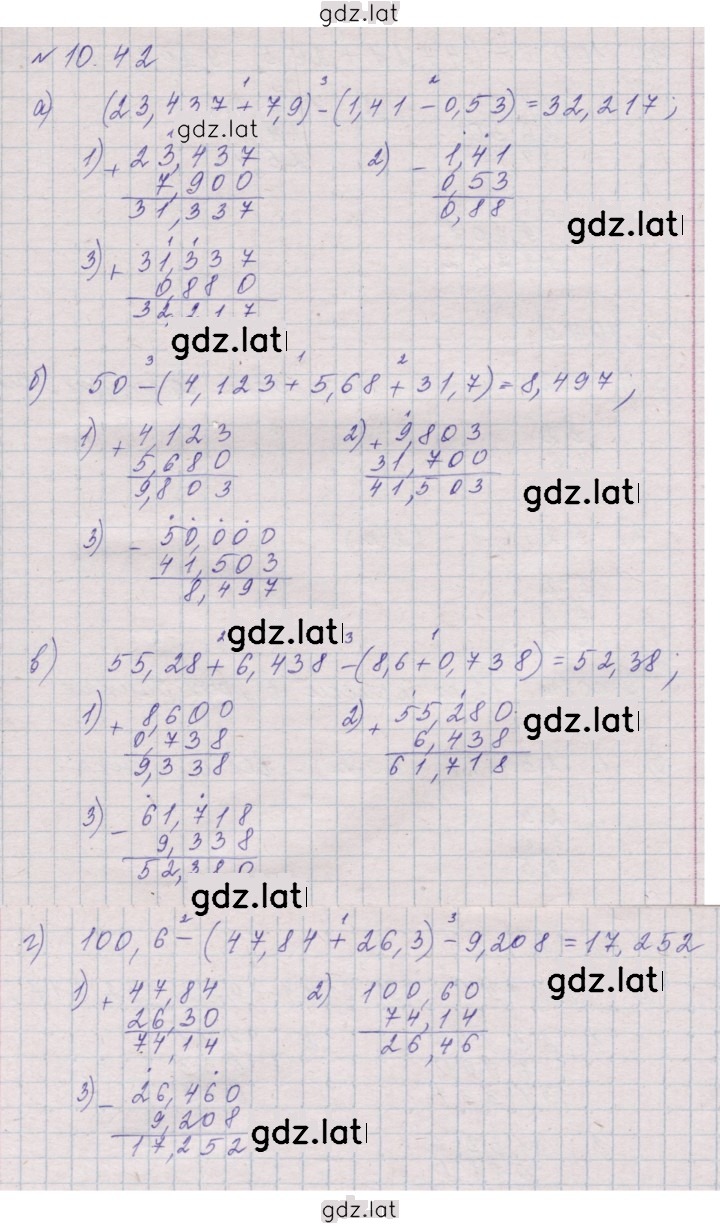 gdz.lat
№ 10.42
а) (23,437 + 7,9) - (1,41 - 0,53) = 32,217;
gdz.lat
1) + 23,437
7,900
31,337
2) - 1,41
0,53
0,88
gdz.lat
3) + 31,337
0,880
32,217
gdz.lat
б) 50 - (4,123 + 5,68 + 31,7) = 8,497;
1) + 4,123
5,680
9,803
2) + 9,803
31,700
41,503
gdz.lat
3) - 50,000
41,503
8,497
gdz.lat
в) 55,28 + 6,438 - (8,6 + 0,738) = 52,38;
1) + 8,600
0,738
9,338
2) + 55,280
6,438
61,718
gdz.lat
3) - 61,718
9,338
52,380
gdz.lat
г) 100,6 - (47,84 + 26,3) - 9,208 = 17,252
gdz.lat
1) + 47,84
26,30
74,14
2) 100,60
74,14
26,46
3) - 26,460
9,208
17,252
gdz.lat
gdz.lat